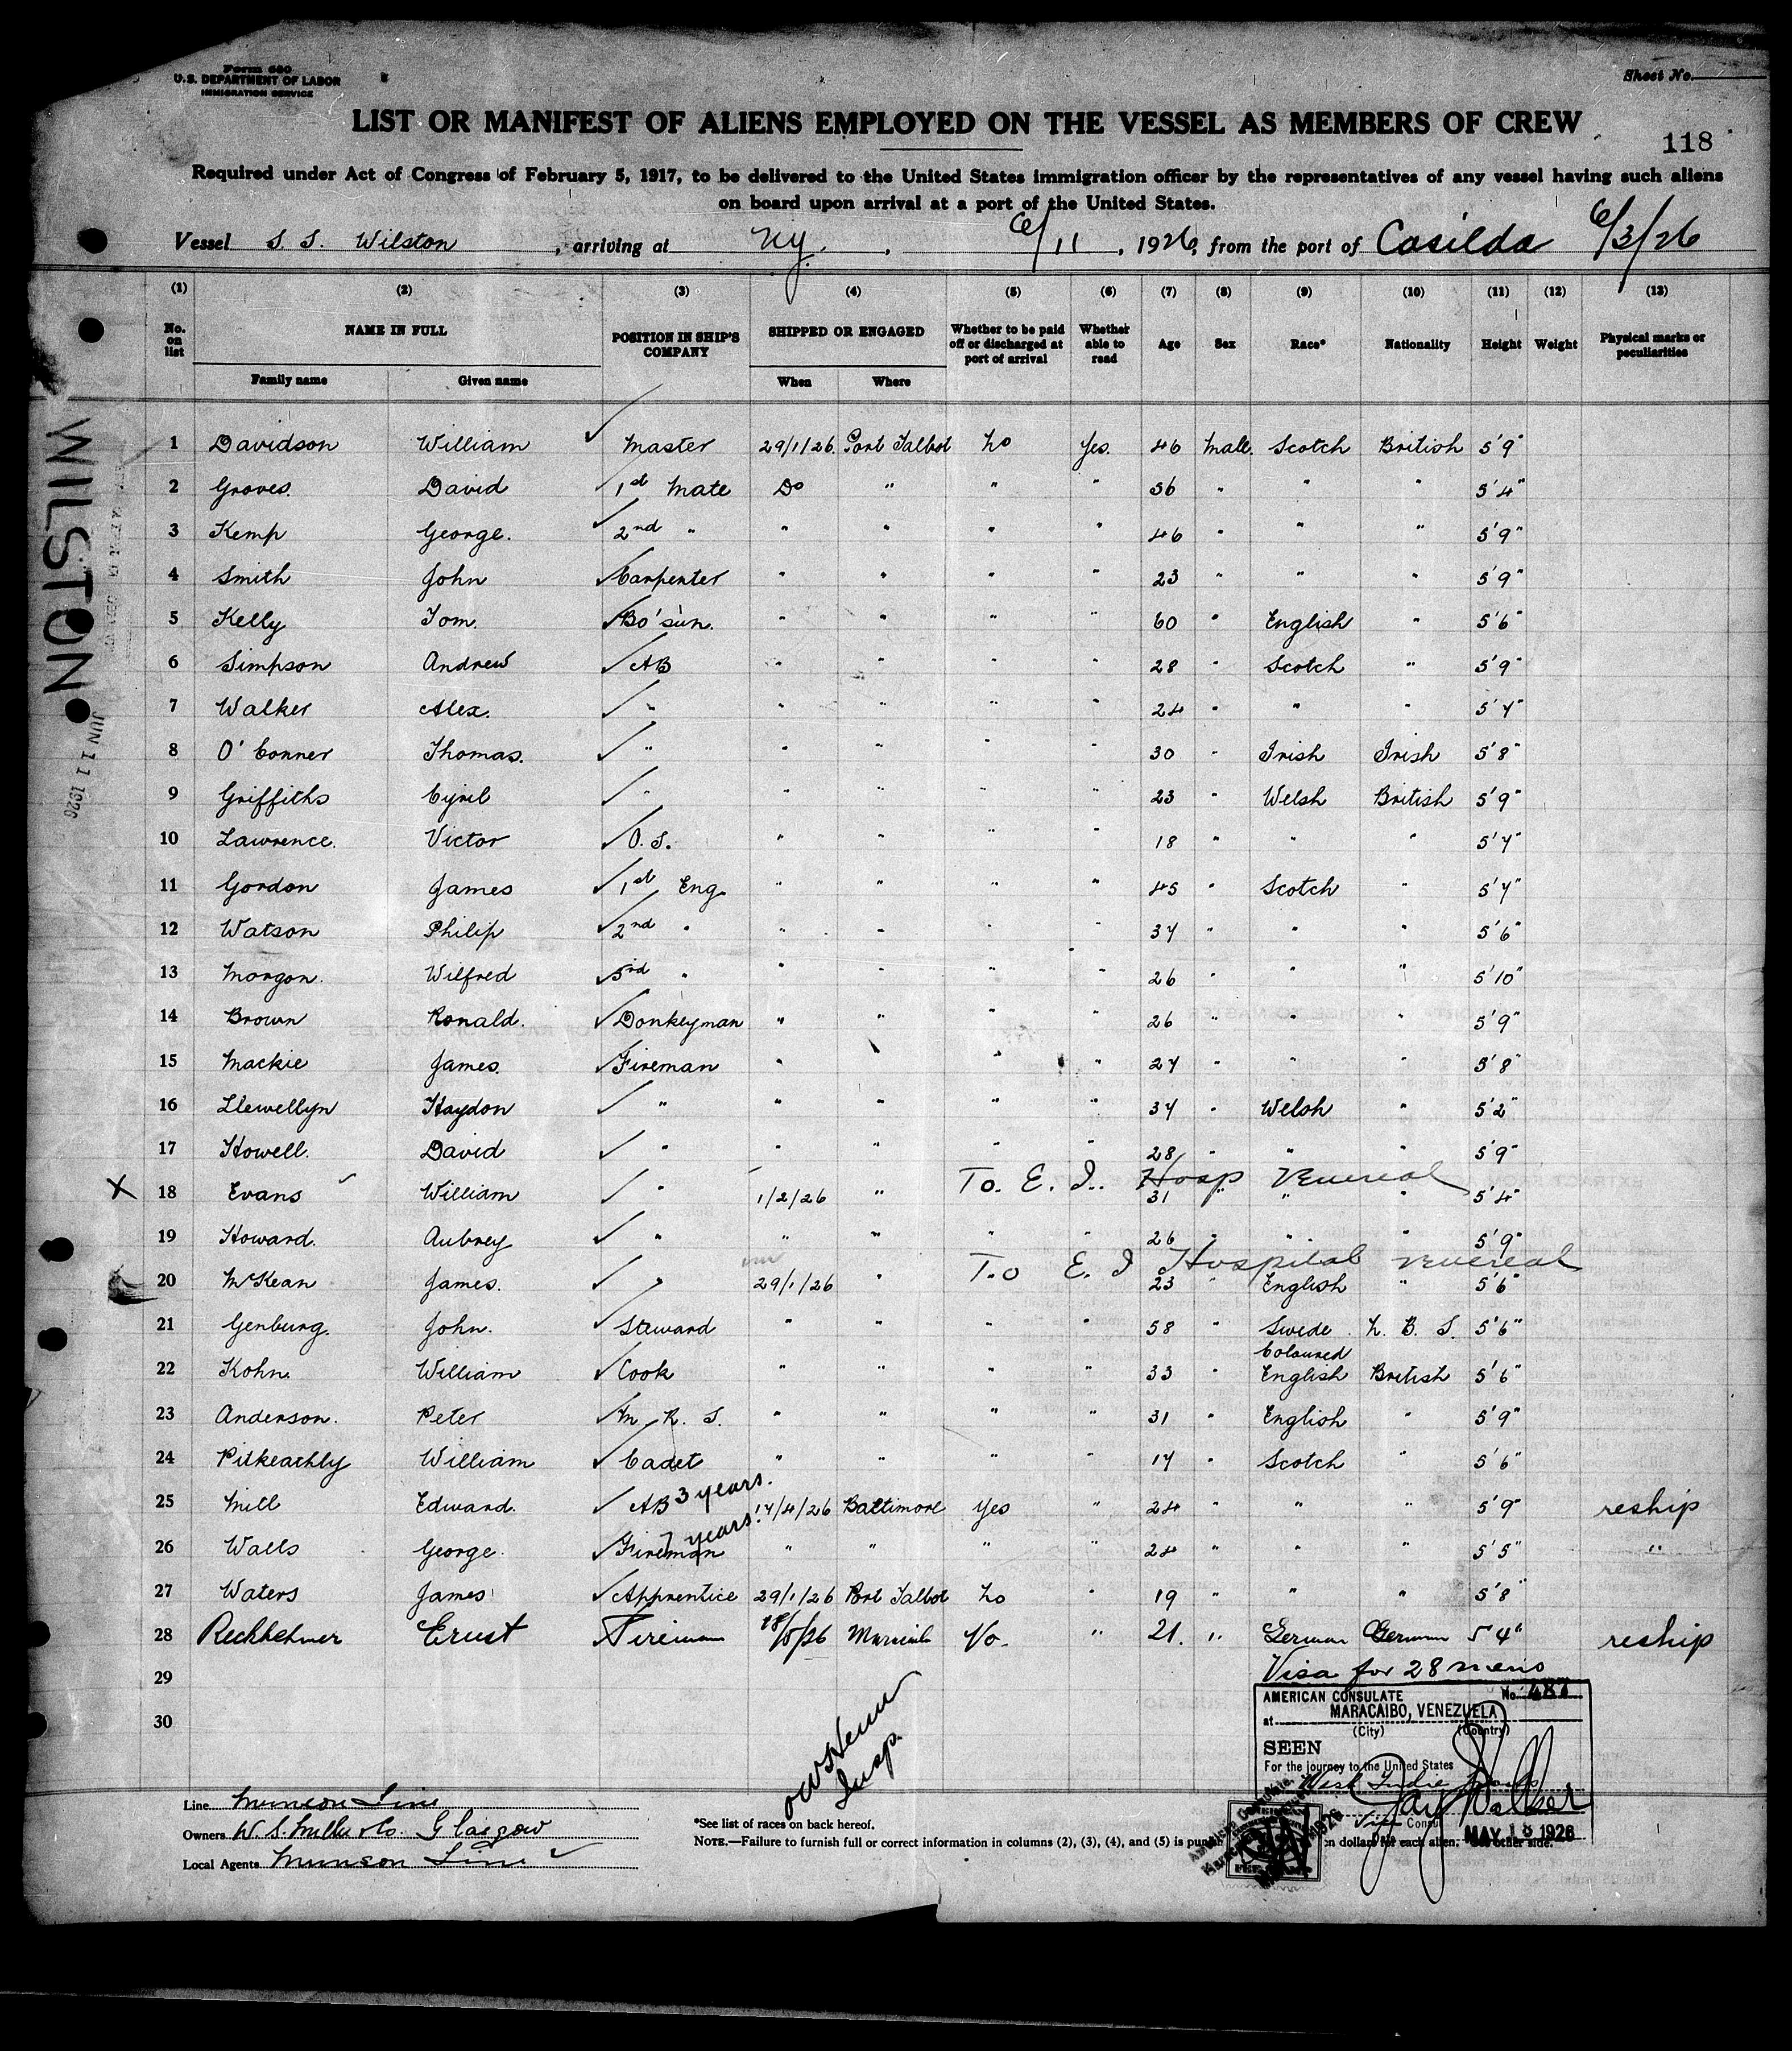 Form 680
U.S. DEPARTMENT OF LABOR
IMMIGRATION SERVICE
Sheet No.
LIST OR MANIFEST OF ALIENS EMPLOYED ON THE VESSEL AS MEMBERS OF CREW
118
Required under Act of Congress of February 5, 1917, to be delivered to the United States immigration officer by the representatives of any vessel having such aliens
on board upon arrival at a port of the United States.
Vessel S. S. Wilston, arriving at NY., 6/11, 1926, from the port of Casilda 6/3/26
(1) (2) (3) (4) (5) (6) (7) (8) (9) (10) (11) (12) (13)
No. on list NAME IN FULL POSITION IN SHIP'S COMPANY SHIPPED OR ENGAGED Whether to be paid off or discharged at port of arrival Whether able to read Age Sex Race* Nationality Height Weight Physical marks or peculiarities
Family name Given name When Where
1 Davidson William Master 29/1/26. Port Talbot No Yes. 46 Male. Scotch British 5'9"
2 Groves. David 1st Mate Do " " " 36 " " " 5'4"
3 Kemp George. 2nd " " " " " 46 " " " 5'9"
4 Smith John Carpenter " " " " 23 " " " 5'9"
5 Kelly Tom. Bo'sun. " " " " 60 " English " 5'6"
6 Simpson Andrew AB " " " " 28 " Scotch " 5'9"
7 Walker Alex. " " " " " 24 " " " 5'7"
8 O'Conner Thomas. " " " " " 30 " Irish Irish 5'8"
9 Griffiths Cyril " " " " " 23 " Welsh British 5'9"
10 Lawrence. Victor O. S. " " " " 18 " " " 5'7"
11 Gordon James 1st Eng. " " " " 45 " Scotch " 5'7"
12 Watson Philip 2nd " " " " " 37 " " " 5'6"
13 Morgan. Wilfred 3rd " " " " " 26 " " " 5'10"
14 Brown Ronald. Donkeyman " " " " 26 " " " 5'9"
15 Mackie James. Fireman " " " " 27 " " " 5'8"
16 Llewellyn Haydon " " " " " 37 " Welsh " 5'2"
17 Howell. David " " " " " 28 " " " 5'9"
X 18 Evans William " 1/2/26 " To. E. I. Hosp Venereal 31 " " " 5'4"
19 Howard. Aubrey " " " " " 26 " " " 5'9"
20 McKean James. " 29/1/26 " To E. I Hospital Venereal 23 " English " 5'6"
21 Genburg. John. Steward " " " " 58 " Swede N. B. S. 5'6"
22 Kohn. William Cook " " " " 33 " Coloured English British 5'6"
23 Anderson. Peter M. R. S. " " " " 31 " English " 5'9"
24 Pitkeathly William Cadet " " " " 17 " Scotch " 5'6"
25 Mill Edward. AB 3 years. 17/4/26 Baltimore Yes " 24 " " " 5'9" reship
26 Walls George. Fireman 7 years. " " " " 24 " " " 5'5" "
27 Waters James Apprentice 29/1/26 Port Talbot No " 19 " " " 5'8"
28 Ernst Fireman 18/5/26 No. " 21. " German German 5 4" reship
29 Visa for 28 mens
30
AMERICAN CONSULATE No. 487
at MARACAIBO, VENEZUELA
(City) (Country)
SEEN
For the journey to the United States
West Indie
Jay Walker
Vice Consul
MAY 18 1926
Insp.
Line Munson Line
Owners W. S. Miller & Co. Glasgow
Local Agents Munson Line
*See list of races on back hereof.
NOTE.—Failure to furnish full or correct information in columns (2), (3), (4), and (5) is punish n dollars for each alien. See other side.
WILSTON
JUN 11 1926